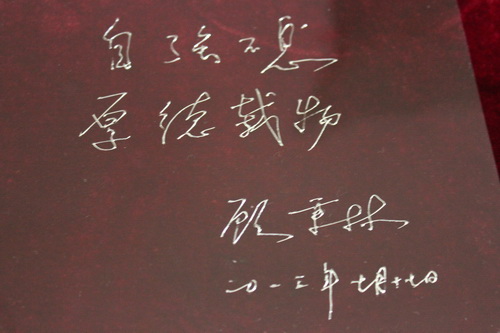 自强不息
厚德载物
顾秉林
二〇一三年七月十七日